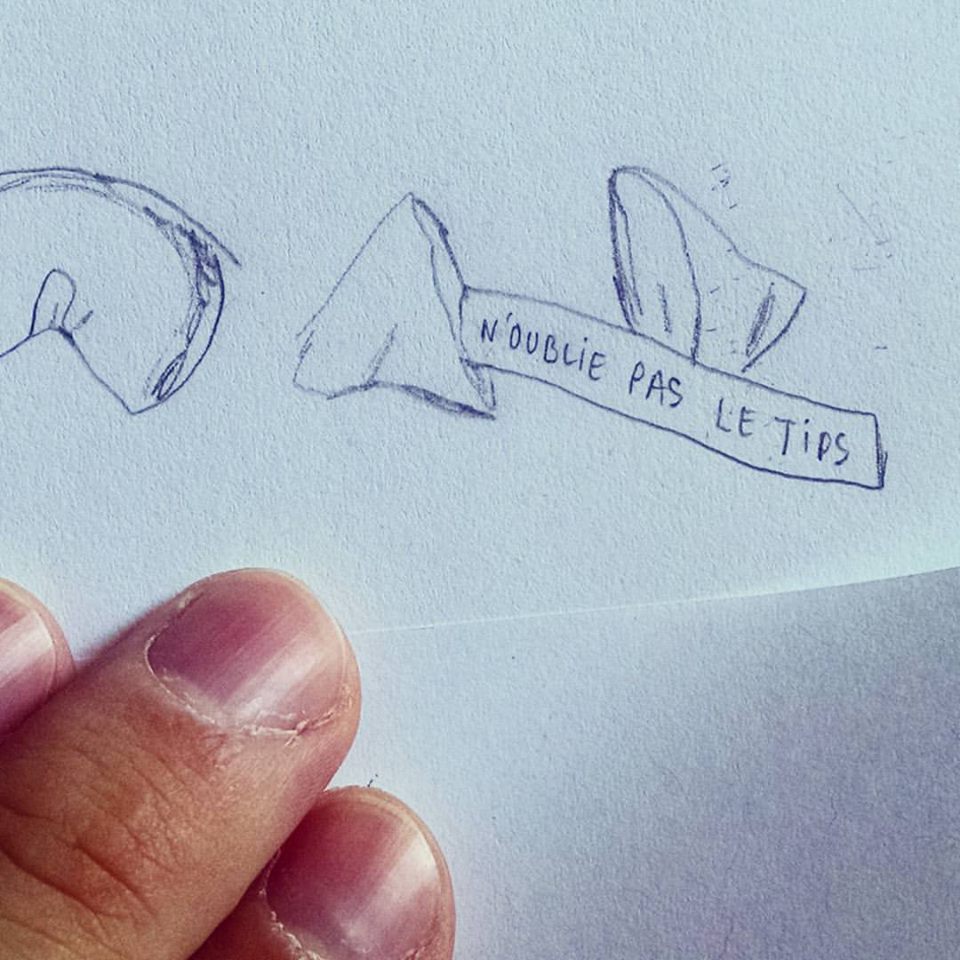 N'OUBLiE PAS LE TiPS